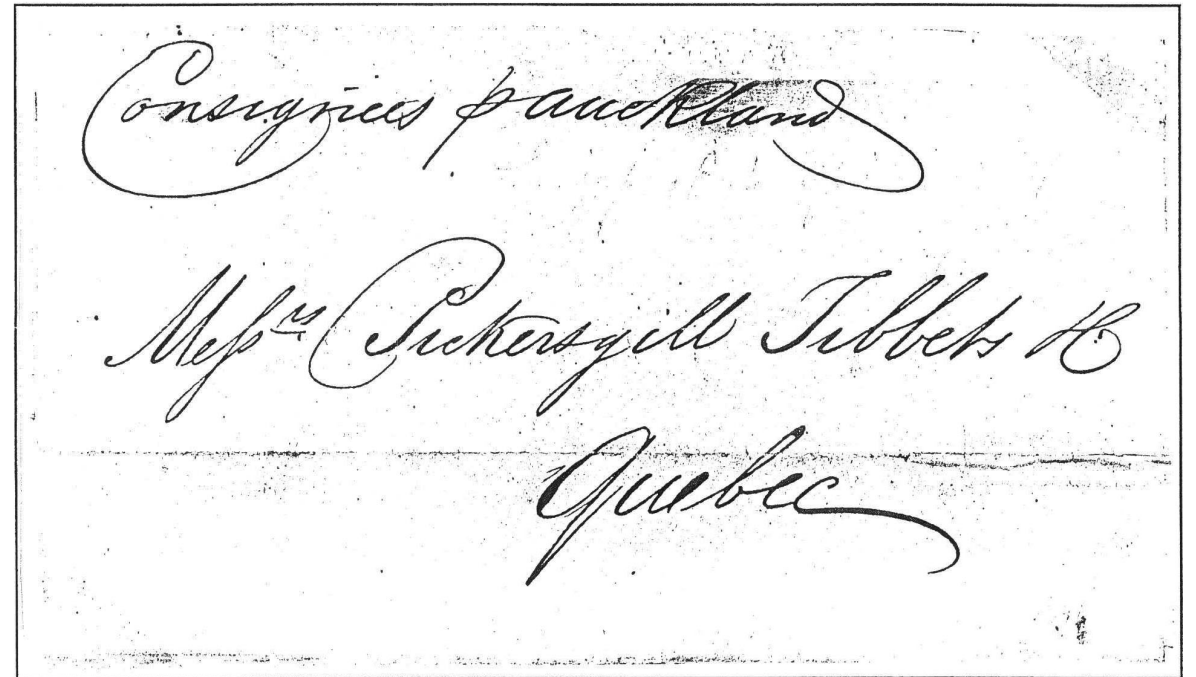 Consignees p Auckland
Messrs Pickersgill Tibbets &
Quebec